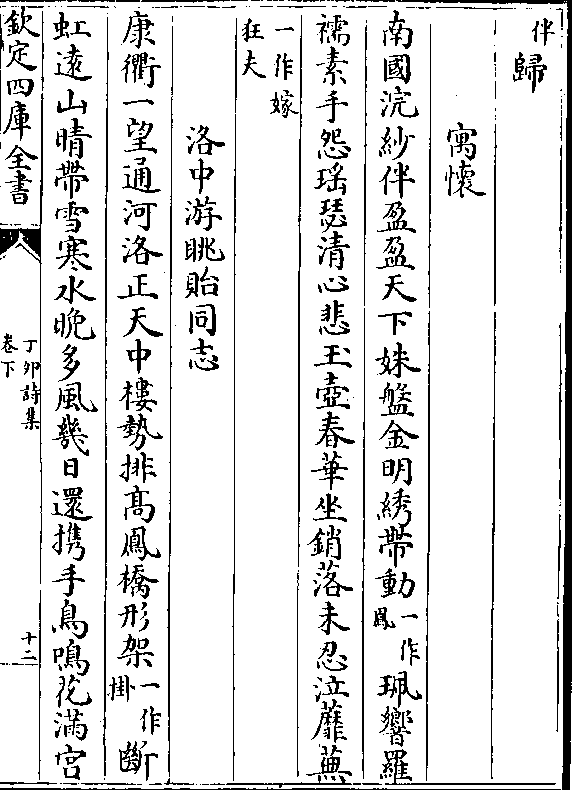 伴歸
寓懷
南國浣紗伴盈盈天下姝盤金明綉帶動一作鳳珮響羅
襦素手怨瑶瑟清心悲玉壺春華坐銷落未忍泣蘼蕪
一作嫁狂夫
洛中游眺貽同志
康衢一望通河洛正天中樓勢排高鳳橋形架一作掛斷
虹逺山晴帶雪寒水晚多風幾日還携手鳥鳴花滿宫
欽定四庫全書
丁卯詩集
卷下
十二